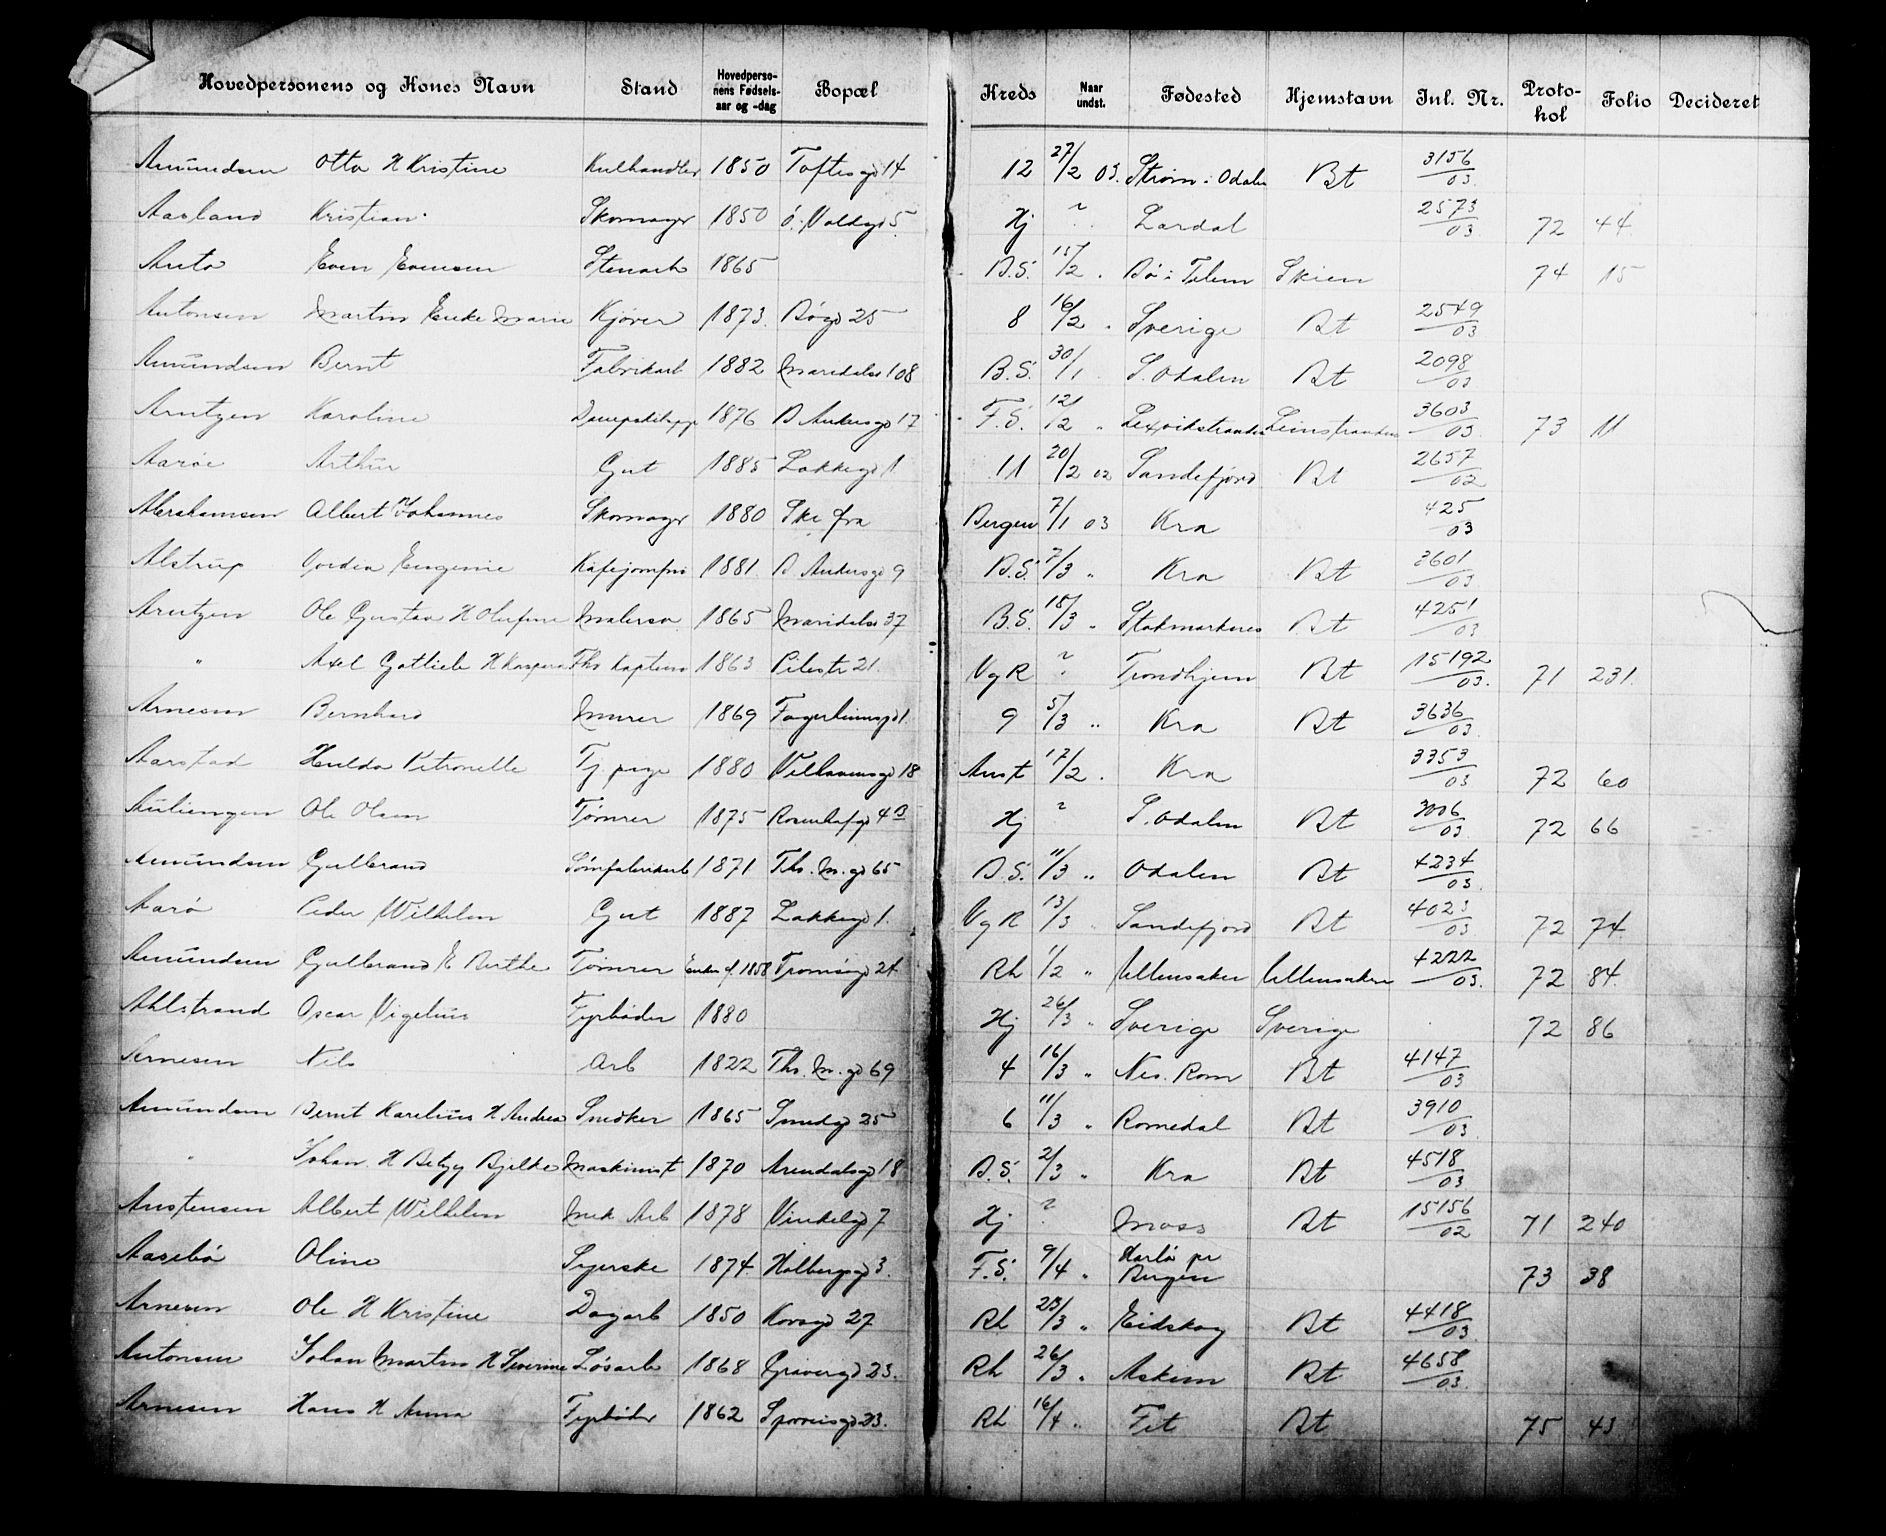 Hovedpersonens og Kones Navn Stand Hovedperso-nens Fødsels-aar og -dag Bopæl Kreds Naar undst. Fødested Hjemstavn Inl. Nr. Proto-kol Folio Decideret
Amundsen Otto H Kristine Kulhandler 1850 Toftesgd 14 12 27/2 03. Strøm i Odalen Bt 3156/03
Aasland Kristian Skomager 1850 Ö. Voldgd 5 Hj ? Lardal 2573/03 72 44
Even Evensen Stenarb 1865 B.S. 15/2 Bö i Telem Skien 74 15
Antonsen Martin Enke Marie Kjører 1873 Bögd 25 8 16/2 Sverige Bt 2549/03
Amundsen Bernt Fabrikarb 1882 Maridalsv 108 B.S. 30/1 S. Odalen Bt 2098/03
Arntzen Karoline 1876 B Ankersgd 17 F.S. 12/2 " Leinstranden 3603/03 73 11
Aarøe Arthur Gut 1885 Lakkegd 1 11 20/2 02 Sandefjord Bt 2657/02
Abrahamsen Albert Johannes Skomager 1880 Ske fra Bergen 7/1 03 Kra 425/03
Alstrup Eugenie Kafejomfru 1881 B Ankersgd 9 B.S. 7/3 " Kra Bt 3601/03
Arntzen Ole Gustav H Olufine Malersv 1865 Maridalsv 37 B.S. 18/3 " Stokmarknes Bt 4251/03
" Axel Gotlieb H Fhv Kaptein 1863 Pilestr 21. Vg R ? Trondhjem Bt 15192/03. 71 231.
Arnesen Bernhard Murer 1869 Fagerliensgd 1. 9 5/3 " Kra Bt 3636/03
Aarstad Hulda Petronelle Tj. pige 1880 Velhavensgd 18 Anst 17/2 . Kra 3353/03 72 60
Auliengen Ole Olsen Tømrer 1875 Rosenhofgd 4 B Hj ? S. Odalen Bt 3006/03 72 66
Amundsen Gulbrand Sömfabrikarb 1871 Ths. M. gd 65 B.S. 11/3 " Odalen Bt 4234/03
Aarö Peder Wilhelm Gut 1887 Lakkegd 1. Vg R 13/3 Sandefjord Bt 4023/03 72 74.
Amundsen Gulbrand E Berthe Tømrer Enken f. 1858 Tromsögd 24 Rh 1/2 " Ullensaker Ullensaker 4222/03. 72 84.
Ahlstrand Oscar Vigelius Fyrbøder 1880 Hj 26/3 " Sverige Sverige 72 86
Arnesen Nils Arb 1822 Ths. M. gd 69 4 16/3 " Nes. Rom Bt 4147/03
Amundsen Bernt Karelius H Andrea Snedker 1865 Smedgd 25 6 11/3 " Romedal Bt 3910/03
" Johan H Betzy Bjelke Maskinist 1870 Arendalsgd 18 B.S. 2/3 " Kra Bt 4518/03
Austensen Albert Wilhelm Mek Arb 1878 Vinkelgd 7 Hj ? Moss Bt 15156/02 71 240
Aasebö Oline Syerske 1874 Holbergsgd 3. F.S. 9/4 " Herlö pr Bergen 73 38
Arnesen Ole H Kristine Dagarb 1850 Korsgd 27 Rh 23/3 " Eidskog Bt 4418/03
Antonsen Johan Martin H Severine Løsarb 1868 Grøvergd 23. Rh 26/3 " Askim Bt 4658/03
Arnesen Hans H Anna Fyrbøder 1862 Sporveisgd 23. Rh 16/4 " Fet Bt 75 43